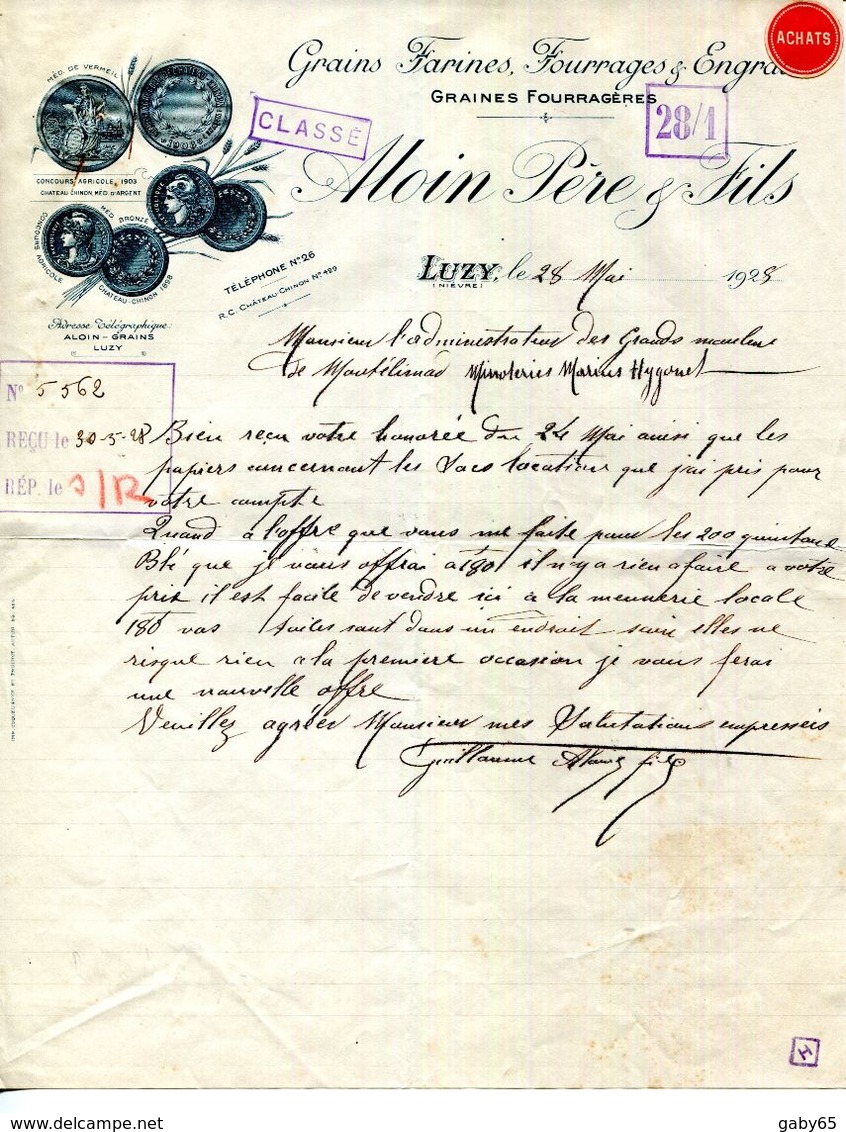 ACHATS
Grains Farines, Fourrages & Engrais
GRAINES FOURRAGÈRES
CLASSÉ
28/1
Aloin Père & Fils
MÉD. DE VERMEIL
1908
CONCOURS AGRICOLE, 1903
CHATEAU-CHINON, MÉD. D'ARGENT
CONCOURS AGRICOLE
MÉD. BRONZE
CHATEAU-CHINON 1898
TÉLÉPHONE N° 26
R.C. CHÂTEAU-CHINON N° 499
LUZY, le 28 Mai 1928
(NIÈVRE)
Adresse Télégraphique:
ALOIN - GRAINS
LUZY
Monsieur l'administrateur des Grands moulins
de Montélimad Minoteries Marius Hygonet
N° 5562
REÇU le 30-5-28
RÉP. le S/R
Bien reçu votre honorée du 24 Mai ainsi que les
papiers concernant les Sacs location que j'ai pris pour
votre compte
Quand à l'offre que vous me faite pour les 200 quintaux
Blé que je vous offrai a 180 il n'y a rien a faire a votre
prix il est facile de vendre ici a la meunerie locale
180 vos toiles sont dans un endroit sain elles ne
risque rien a la premiere occasion je vous ferai
une nouvelle offre
Veuillez agréer Monsieur mes Salutations empressées
Guillaume Aloin fils
H
gaby65